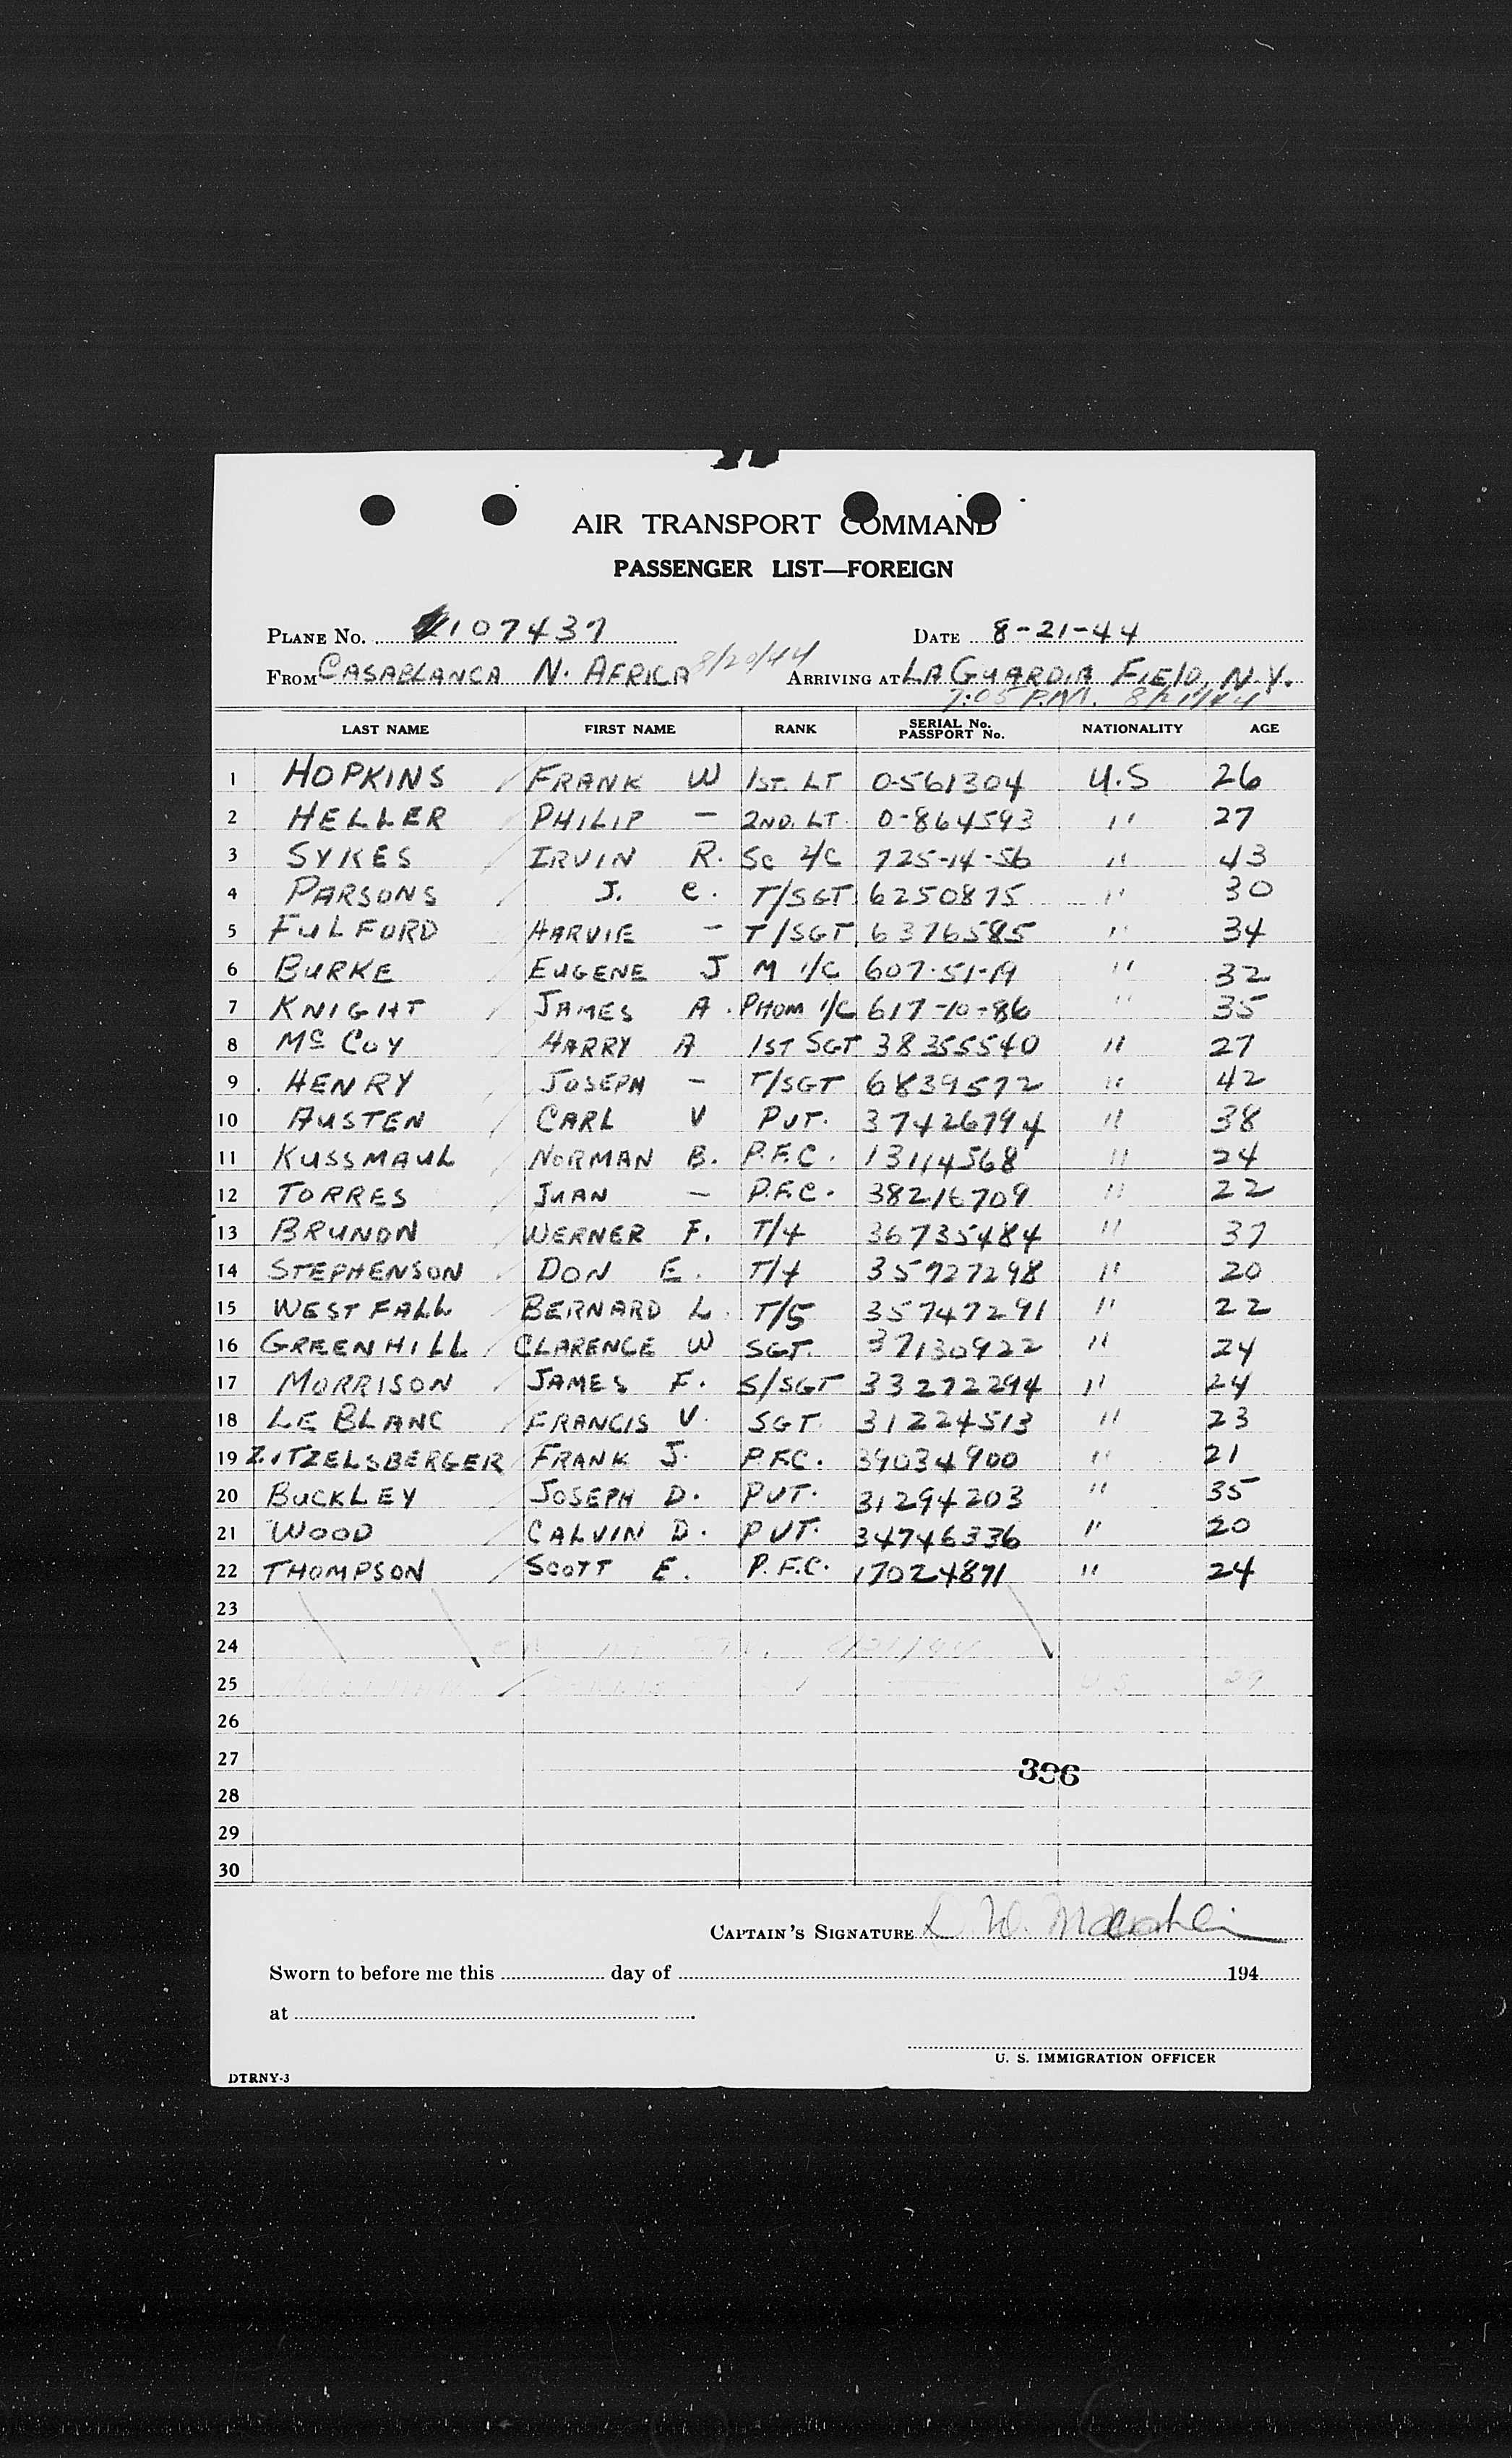 AIR TRANSPORT COMMAND
PASSENGER LIST—FOREIGN
PLANE No. 107437 DATE 8-21-44
FROM CASABLANCA N. AFRICA 8/20/44 ARRIVING AT LA GUARDIA FIELD, N.Y.
7:05 P.M. 8/21/44
LAST NAME FIRST NAME RANK SERIAL No. PASSPORT No. NATIONALITY AGE
1 HOPKINS / FRANK W 1ST. LT 0-561304 U.S 26
2 HELLER / PHILIP — 2ND. LT. 0-864593 " 27
3 SYKES / IRVIN R. SC 2/C 725-14-56 " 43
4 PARSONS / J. C. T/SGT 6250875 " 30
5 FULFORD HARVIE — T/SGT 6376585 " 34
6 BURKE / EUGENE J M 1/C 607-51-19 " 32
7 KNIGHT / JAMES A. PHOM 1/C 617-10-86 " 35
8 McCOY HARRY A 1ST SGT 38355540 " 27
9 HENRY / JOSEPH — T/SGT 6839572 " 42
10 AUSTEN / CARL V PVT. 37426794 " 38
11 KUSSMAUL / NORMAN B. P.F.C. 13114568 " 24
12 TORRES / JUAN — P.F.C. 38216709 " 22
13 BRUNON / WERNER F. T/4 36735484 " 37
14 STEPHENSON / DON E. T/4 35727298 " 20
15 WESTFALL / BERNARD L. T/5 35747291 " 22
16 GREENHILL / CLARENCE W SGT. 37130922 " 24
17 MORRISON / JAMES F. S/SGT 33272294 " 24
18 LE BLANC / FRANCIS V. SGT. 31224513 " 23
19 ZITZELSBERGER / FRANK J. P.F.C. 39034900 " 21
20 BUCKLEY / JOSEPH D. PVT. 31294203 " 35
21 WOOD / CALVIN D. PVT. 34746336 " 20
22 THOMPSON / SCOTT E. P.F.C. 17024871 " 24
23
24 8/21/44
25 / U.S 29
26
27
396
28
29
30
CAPTAIN'S SIGNATURE
Sworn to before me this day of 194
at
U. S. IMMIGRATION OFFICER
DTRNY-3